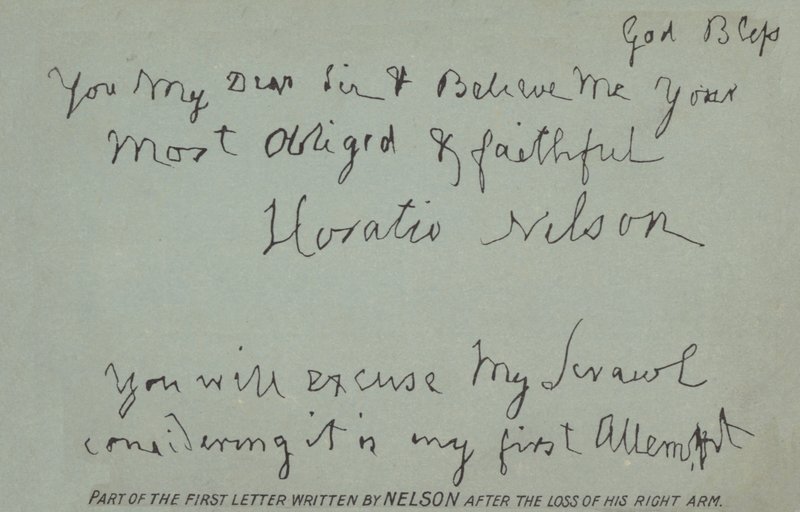 God Bless
You My Dear Sir & Believe Me Your
Most Obliged & faithful
Horatio Nelson
You will excuse My Scrawl
considering it is my first Attempt
PART OF THE FIRST LETTER WRITTEN BY NELSON AFTER THE LOSS OF HIS RIGHT ARM.